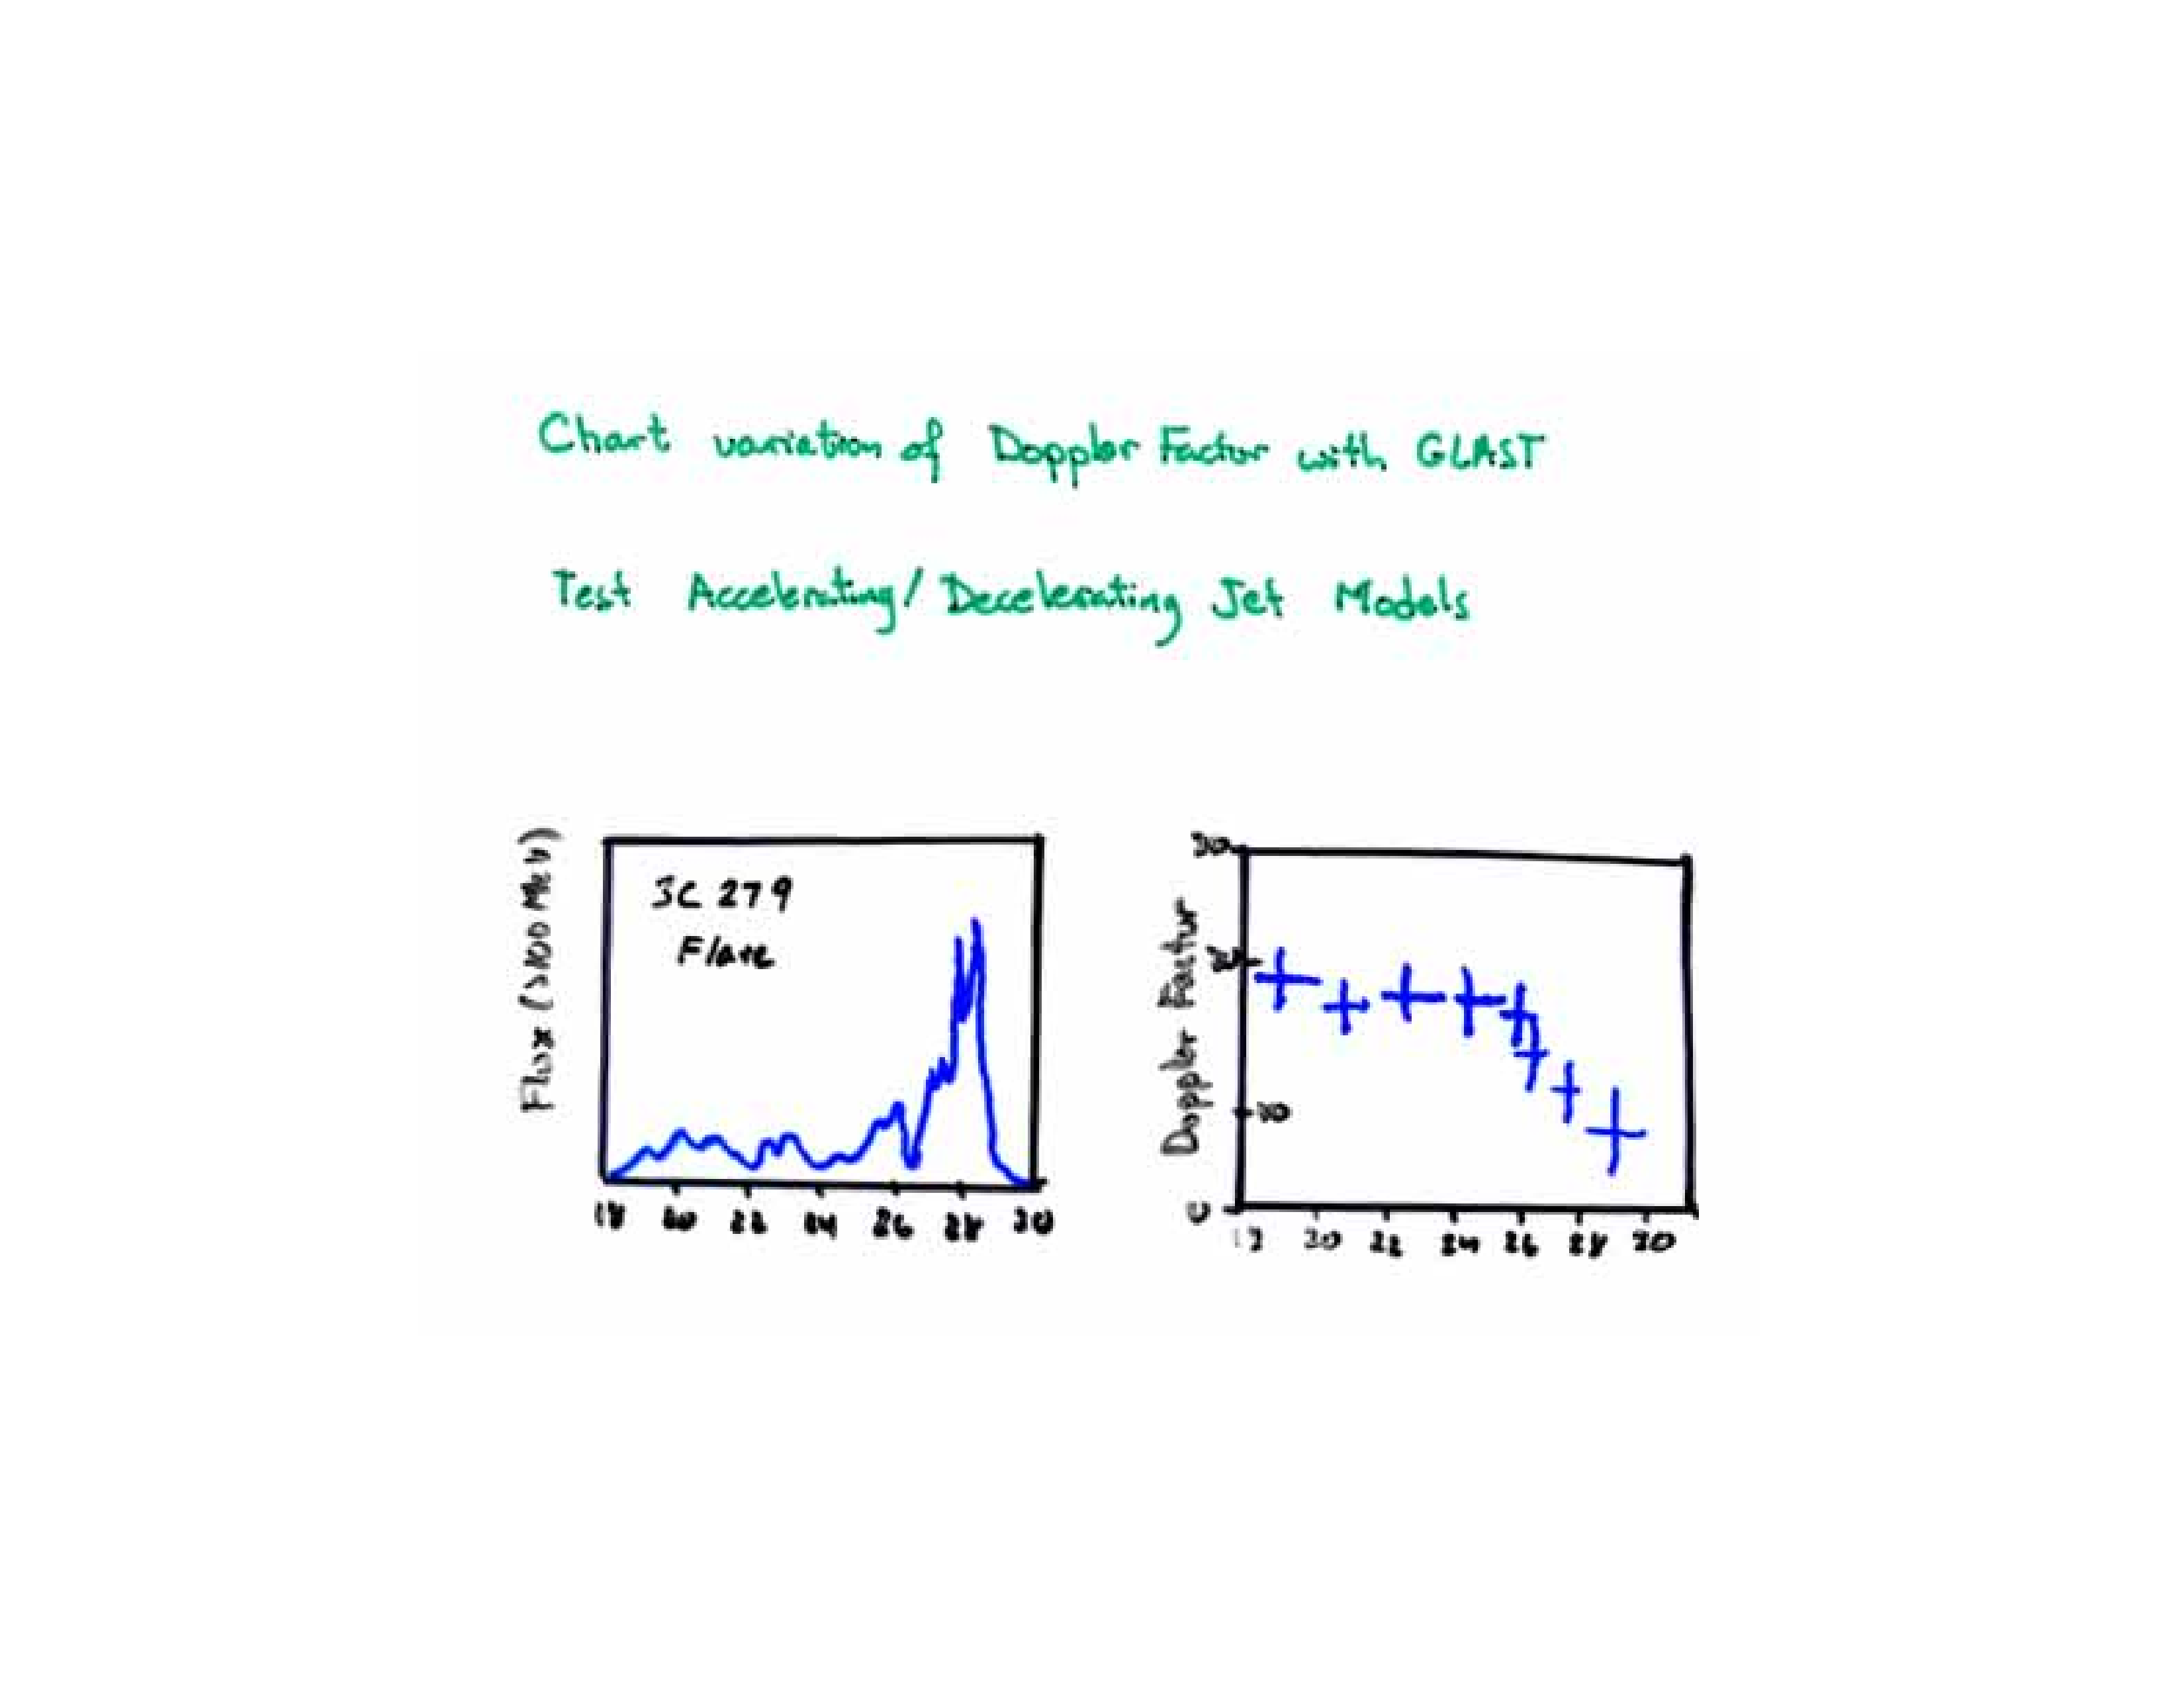 Chart variation of Doppler Factor with GLAST
Test Accelerating/Decelerating Jet Models
Flux (>100 MeV)
3C 279
Flare
18 20 22 24 26 28 30
Doppler Factor
30
20
10
0
20 22 24 26 28 30